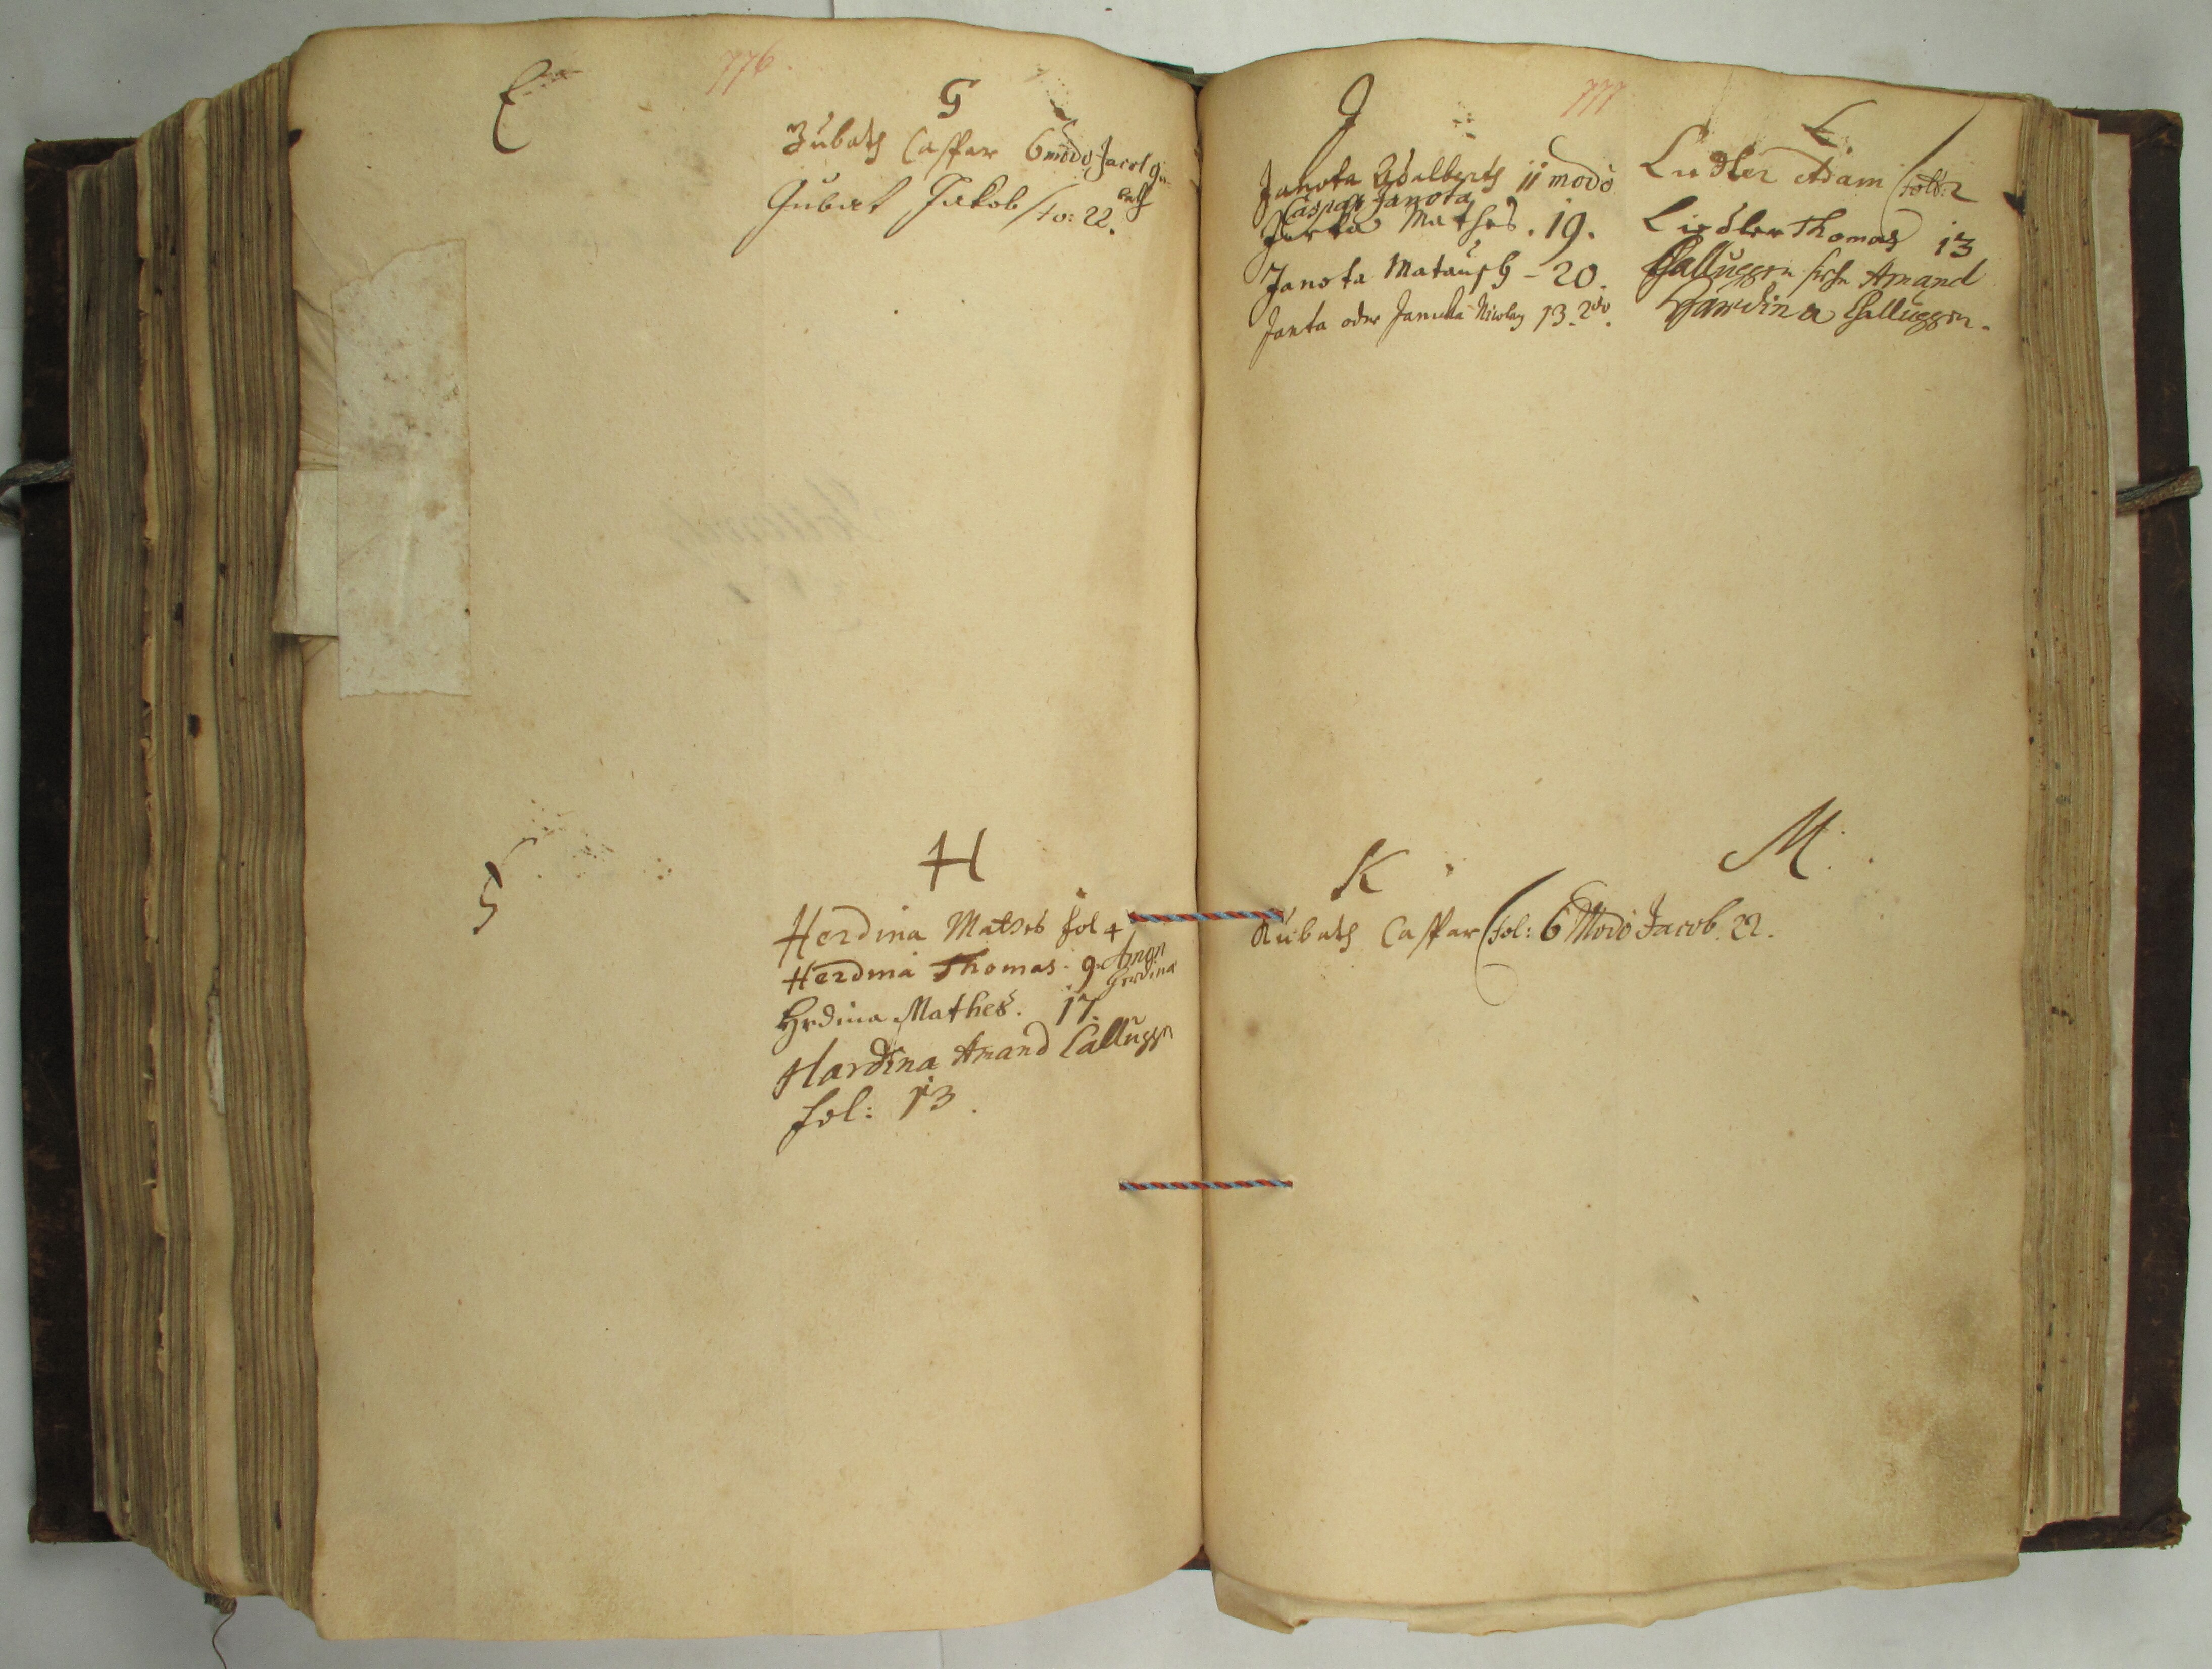 776.
E
G
Gubath Caspar 6 modo Jacob Gu-
bath
Gubat Jakob /fo: 22.
F
H
Herdina Mathes fol 4
Herdina Thomas. 9. Aman
Herdina
Hrdina Mathes. 17.
Hardina Amand Callugger
fol: 13.
777
J
Janota Adalberth 11 modo
Caspar Janota
Mathes. 19.
Janota Matausch - 20.
Janta oder Nicolay 13. 200.
L.
Ludler Adam /fol: 2
Liedler Thomas 13
Challugger Amand
Hardina Challugger.
K
Kubath Caspar /fol: 6 Modo Jacob. 22.
M.